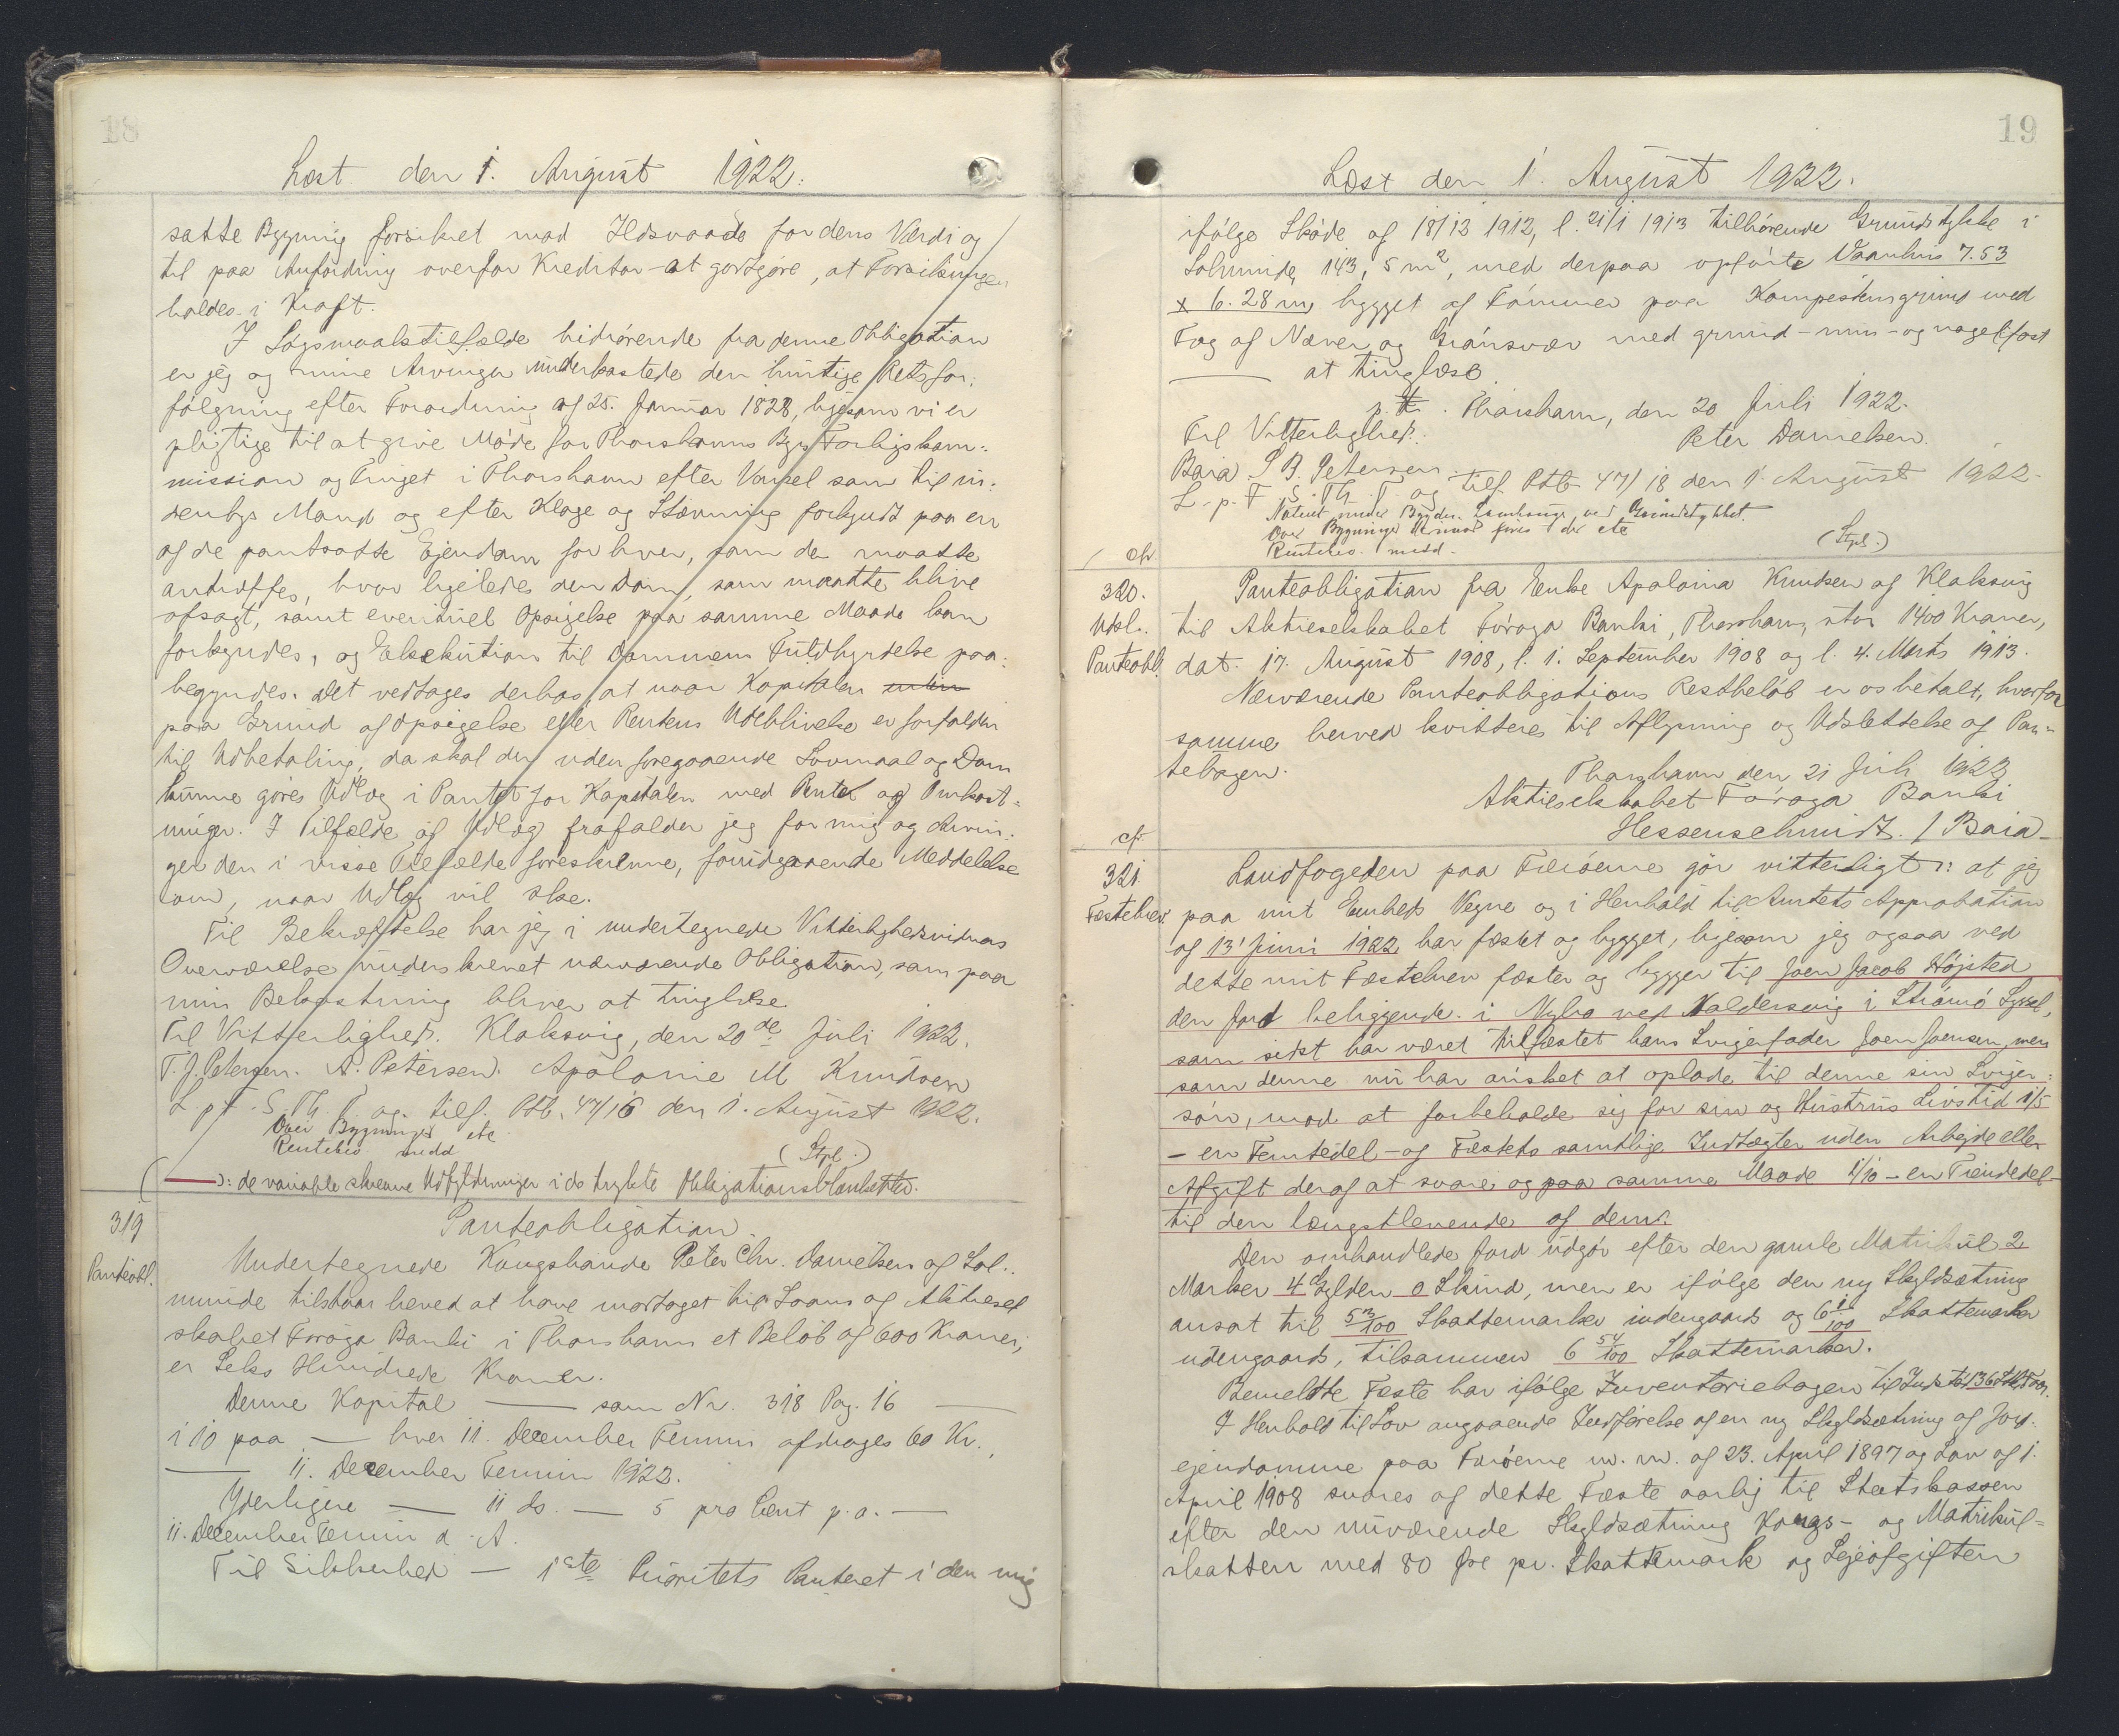 18
Læst den 1. August 1922.
satte Bygning forsikret mod Ildsvaade for dens Værdi og
til paa Anfordring overfor Kreditor at godtgøre, at Forsikringen
holdes i Kraft.
I Søgsmaalstilfælde hidrørende fra denne Obligation
er jeg og mine Arvinger underkastede den hurtige Retsfor-
følgning efter Forordning af 25. Januar 1828, ligesom vi er
pligtige til at give Møde for Thorshavns Byes Forligskom-
mission og Tinget i Thorshavn efter Varsel som til in-
denbys Mand og efter Klage og Stævning forkyndt paa en
af de pantsatte Ejendom for hver, som de maatte
antræffes, hvor ligeledes den Dom, som maatte blive
afsagt, samt eventuel Opsigelse paa samme Maade kan
forkyndes, og Eksekution til Dommens Fuldbyrdelse paa-
begyndes. Det vedtages derhos, at naar Kapitalen
paa Grund af Opsigelse eller Rentens Udeblivelse er forfalden
til Udbetaling, da skal der uden foregaaende Lovmaal og Dom
kunne gøres Udlæg i Pantet for Kapitalen med Renter og Omkost-
ninger. I Tilfælde af Udlæg frafalder jeg for mig og Arvin-
ger den i visse Tilfælde foreskrevne, forudgaaende Meddelelse
om, naar Udlæg vil ske.
Til Bekræftelse har jeg i undertegnede Vitterlighedsvidners
Overværelse underskrevet nærværende Obligation, som paa
min Bekostning bliver at tinglæse.
Til Vitterlighed. Klaksvig, den 20de Juli 1922.
T. J. Petersen. A. Petersen. Apolonie M Knudsen
L. p. F. S. Th. T. og tilf. Ptb. 47/16 den 1. August 1922.
Over Bygninger etc
Renteko medd
(Stpl.)
( —): de variable skrevne Udfyldninger i de trykte Obligationsblanketter.
319
Panteobl.
Panteobligation.
Undertegnede Kongsbonde Peter Chr. Danielsen af Sal-
munde tilstaar herved at have modtaget til Laans af Aktiesel
skabet Føroya Banki i Thorshavn et Beløb af 600 Kroner,
er Seks Hundrede Kroner.
Denne Kapital — som Nr. 318 Pag. 16 —
i 10 paa — hver 11. December Termin afdrages 60 Kr.,
— 11. December Termin 1922.
Yderligere — 11 ds. — 5 pro Cent p. a. —
11. December Termin d. A.
Til Sikkerhed — 1ste Prioritets Panteret i den mig
19
Læst den 1. August 1922.
ifølge Skøde af 18/12 1912, l. 21/1 1913 tilhørende Grundstykke i
Salmunde, 143,5 m², med derpaa opførte Vaanhus 7.53
x 6.28 m, bygget af Tømmer paa Kampestensgrund med
Tag af Næver og Grønsvær med grund- mur- og nagelfast
— at tinglæse
p.t. Thorshavn, den 20 Juli 1922.
Til Vitterlighed:
Peter Danielsen.
Baia. S. B. Petersen.
L. p. F. S. Th. T. og tilf. Ptb. 47/18 den 1. August 1922.
Noteret under Bygden Lamhauge ved Grundstykket.
Over Bygninger
Renteko. medd.
(Stpl.)
cfr.
320.
Udsl.
Panteobl.
Panteobligation fra Enke Apolonia Knudsen af Klaksvig
til Aktieselskabet Føroya Banki, Thorshavn, stor 1400 Kroner,
dat. 17. August 1908, l. 1. September 1908 og l. 4. Marts 1913.
Nærværende Panteobligations Restbeløb er os betalt, hvorfor
samme herved kvitteres til Aflysning og Udslettelse af Pan-
tebogen.
Thorshavn den 21 Juli 1922
Aktieselskabet Føroya Banki
Hessenschmidt. / Baia
cf.
321.
Fæstebrev
Landfogeden paa Færøerne gør vitterligt: at jeg
paa mit Embeds Vegne og i Henhold til Amtets Approbation
af 13' Juni 1922 har fæstet og bygget, ligesom jeg ogsaa ved
dette mit Fæstebrev fæster og bygger til Joen Jacob Højsted
den Jord beliggende i Nybo ved Haldersvig i Strømø Syssel,
som sidst har været tilfæstet hans Svigerfader Joen Joensen, men
som denne nu har ønsket at oplade til denne sin Sviger-
søn, mod at forbeholde sig for sin og Hustrus Livstid 1/5
- en Femtedel - af Fæstets samtlige Indtægter uden Arbejde eller
Afgift deraf at svare, og paa samme Maade 1/10 - en Tiendedel -
til den længstlevende af dem.
Den omhandlede Jord udgør efter den gamle Matrikul 2
Marker 4 Gylden 0 Skind, men er ifølge den ny Skyldsætning
ansat til 53/100 Skattemarker indengaards og 6 1/100 Skattemarker
udengaards, tilsammen 6 54/100 Skattemarker.
Bemeldte Fæste har ifølge Inventariebogen til Indstød 36 Stk. Faar.
I Henhold til Lov angaaende Indførelse af en ny Skyldsætning af Jord-
ejendomme paa Færøerne m. m. af 23. April 1897 og Lov af 1.
April 1908 svares af dette Fæste aarlig til Statskassen
efter den nuværende Skyldsætning Kongs- og Matrikul-
skatten med 80 Øre pr. Skattemark og Lejeafgiften